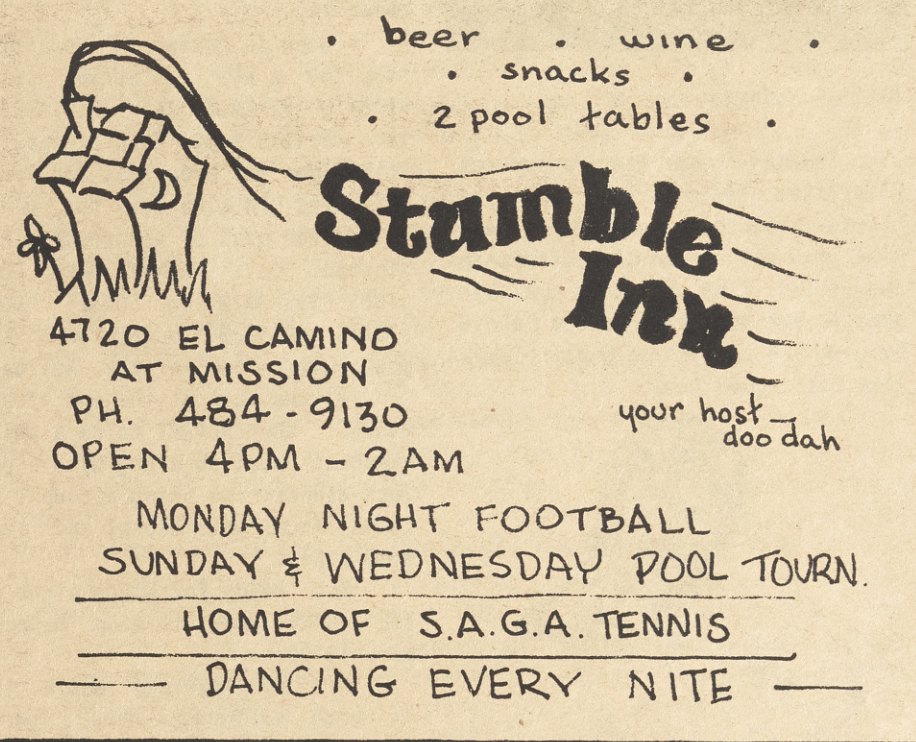 • beer • wine •
• snacks •
• 2 pool tables •
Stumble
Inn
4720 EL CAMINO
AT MISSION
PH. 484-9130
OPEN 4PM - 2AM
your host —
doo dah
MONDAY NIGHT FOOTBALL
SUNDAY & WEDNESDAY POOL TOURN.
HOME OF S.A.G.A. TENNIS
DANCING EVERY NITE